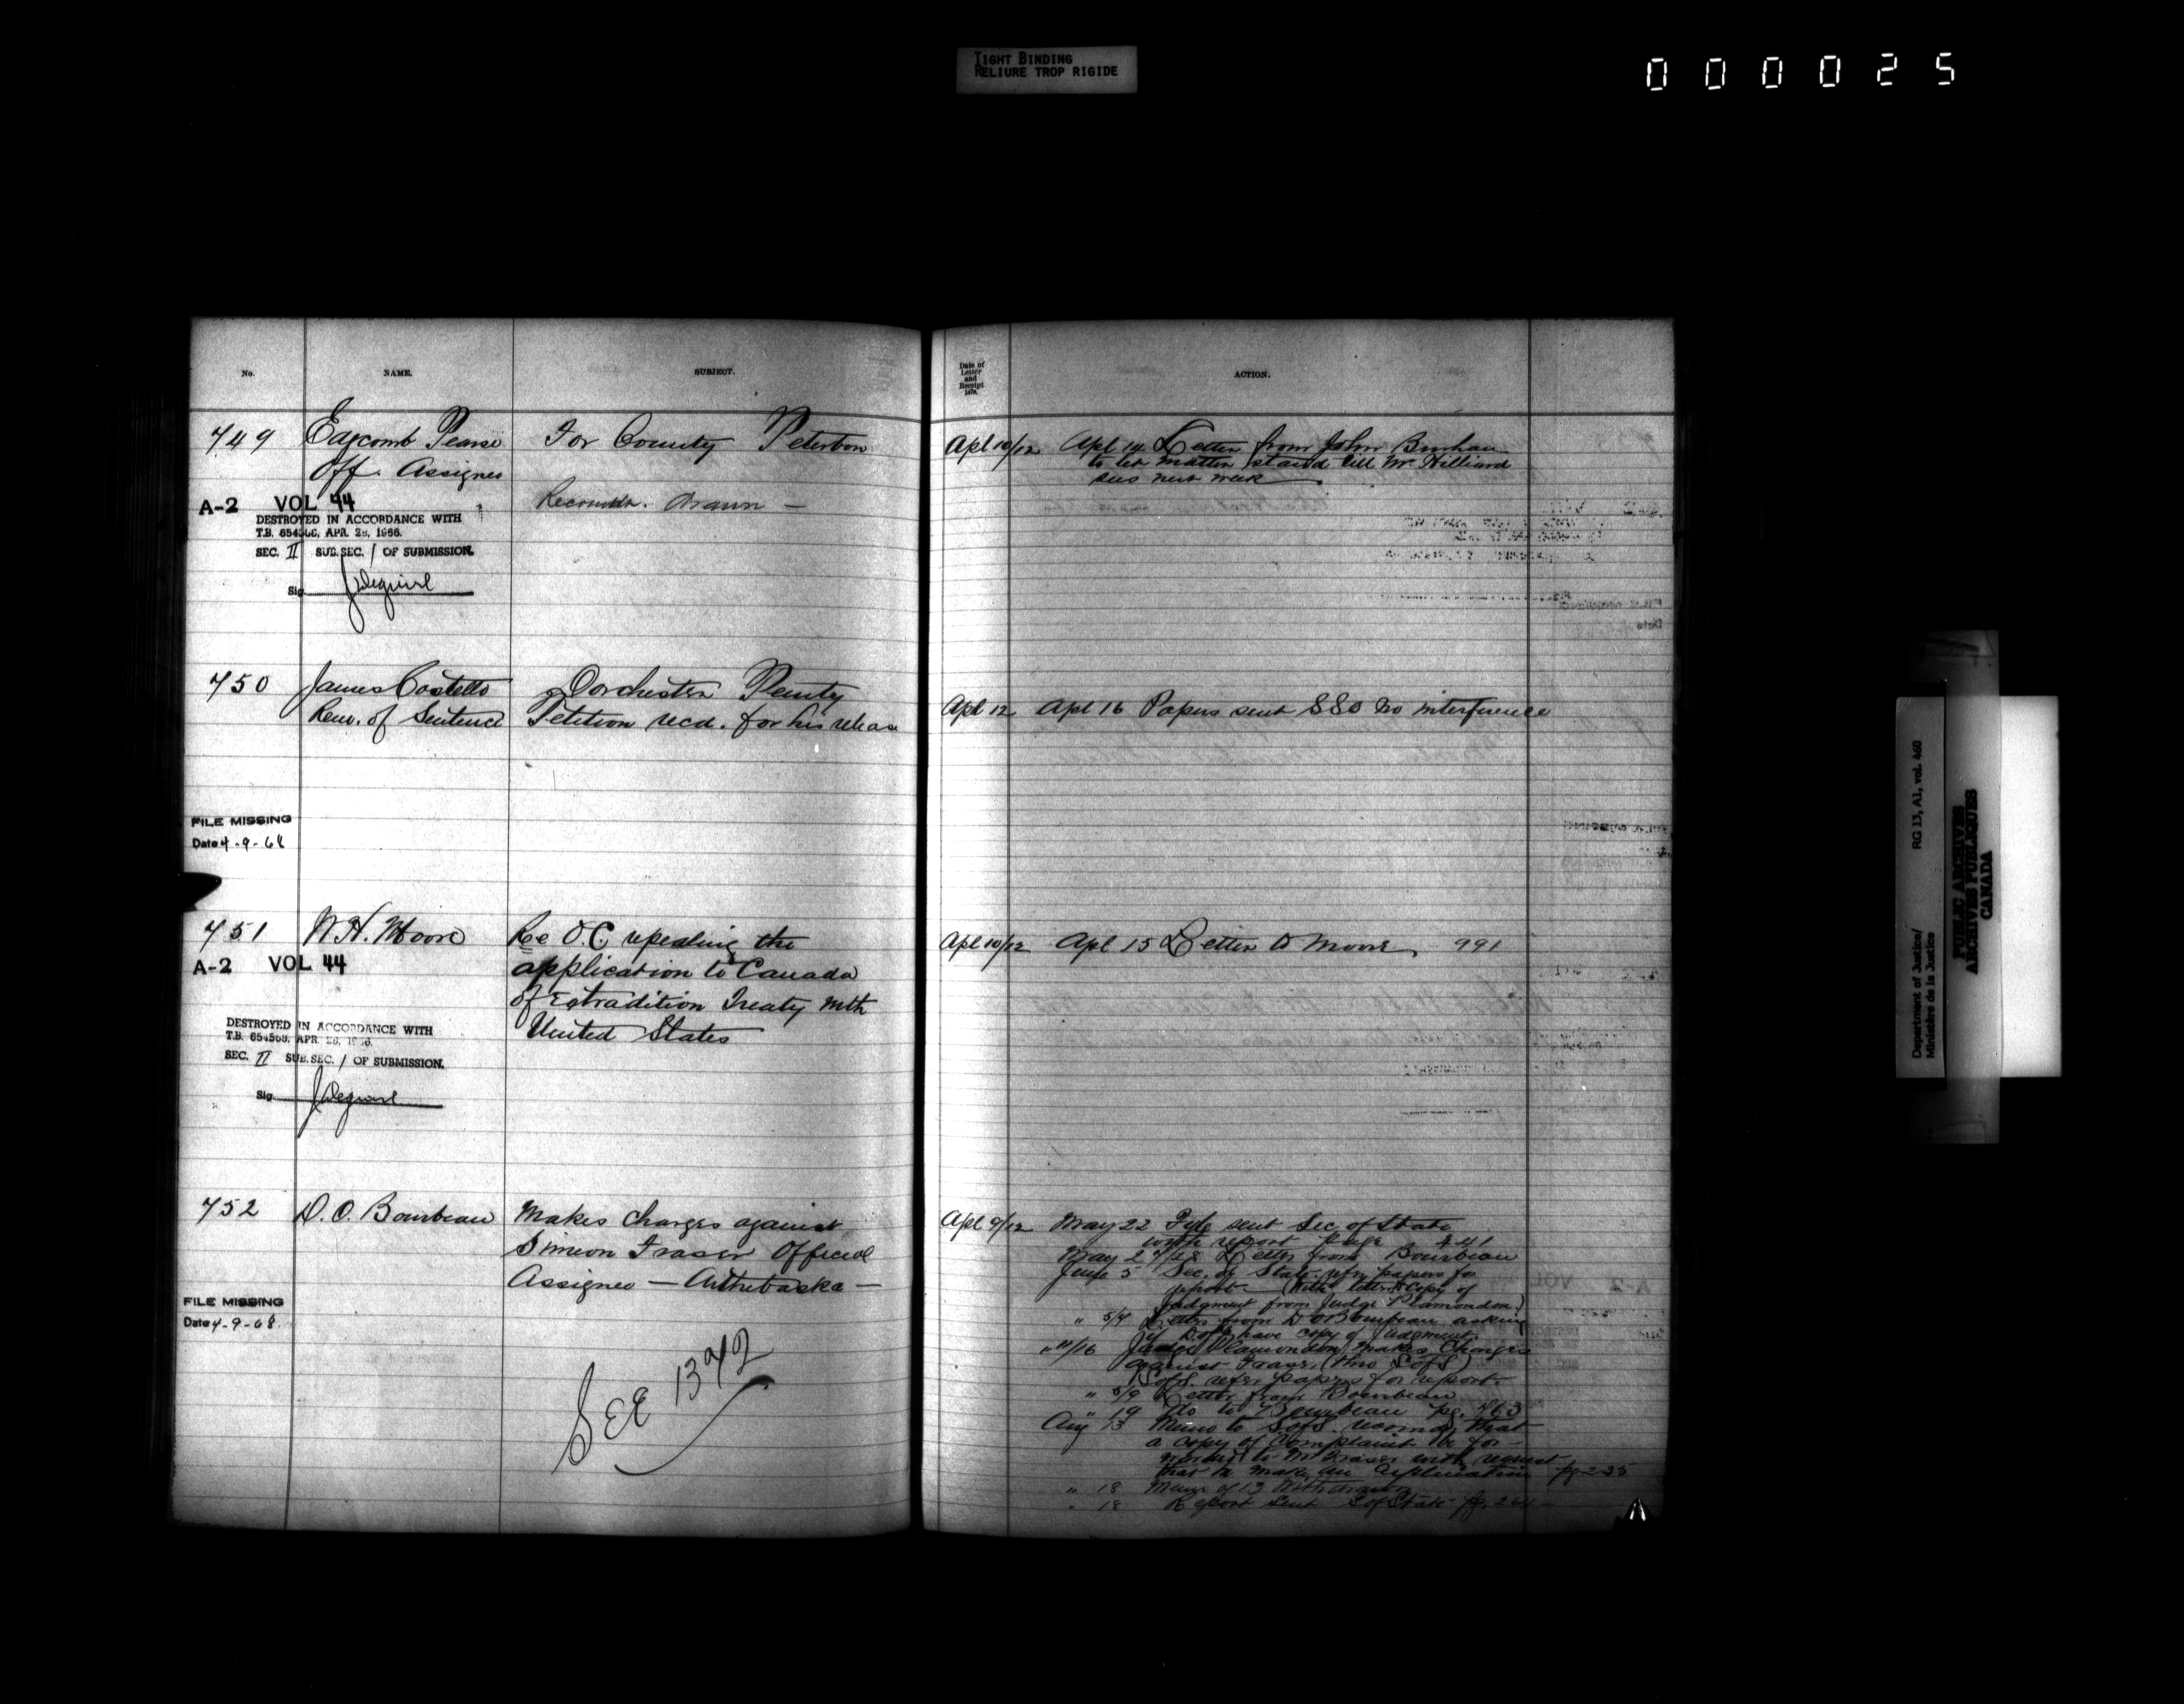 TIGHT BINDING
RELIURE TROP RIGIDE
000025
No. NAME. SUBJECT.
749 Edgcomb Pearse For County Peterboro
Off. Assignee
Recommdn. Drawn —
A-2 VOL 44
DESTROYED IN ACCORDANCE WITH
T.B. 654568, APR. 28, 1966.
SEC. II SUB. SEC. 1 OF SUBMISSION.
Sig.
750 James Costello Dorchester Penity
Rem. of Sentence Petition recd. for his release
FILE MISSING
Date 4-9-68
751 W.H. Moore Re O.C repealing the
A-2 VOL 44 application to Canada
of Extradition Treaty with
United States
DESTROYED IN ACCORDANCE WITH
T.B. 654568, APR. 28, 1966.
SEC. II SUB. SEC. 1 OF SUBMISSION.
Sig
752 D.O. Bourbeau Makes charges against
Simeon Fraser Official
Assignee — Arthabaska —
FILE MISSING
Date 4-9-68
See 1342
Date of
Letter
and
Receipt
1879.
ACTION.
Apl 10/12 Apl 14 Letter from John Burham
to let matter stand till Mr Hilliard
sees next week
Apl 12 Apl 16 Papers sent SSO no interference
Apl 10/12 Apl 15 Letter to Moore 991
Apl 9/12 May 22 Fyle sent Sec of State
with report page 441
May 27/28 Letter from Bourbeau
June 5 Sec. of State refrs papers for
report (With letter & copy of
judgment from Judge Plamondon)
" 5/4 Letter from D O Bourbeau asking
if D of J have copy of judgment
" "/16 Judge Plamondon makes Charges
against Fraser, (thro S of S)
S of S. refer papers for report
" 5/9 Letter from Bourbeau
" 19 do to Bourbeau pg. 763
Aug 13 Memo to S of S recomdg that
a copy of Complaint be for-
warded to Mr Fraser with request
that he make an explanation pg 235
" 18 Memo of 13 Withdrawn
" 18 Report sent S of State pg.
Department of Justice/
Ministère de la Justice
RG 13, A1, vol. 460
PUBLIC ARCHIVES
ARCHIVES PUBLIQUES
CANADA